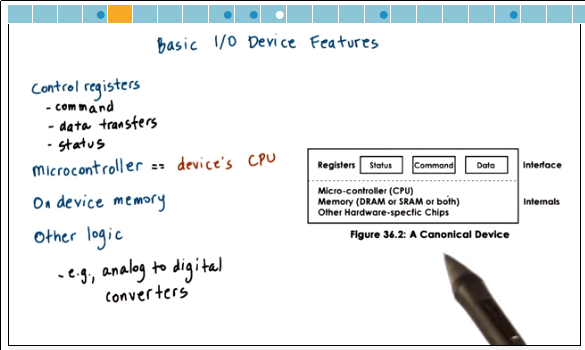 Basic I/O Device Features
Control registers
- command
- data transfers
- status
Microcontroller == device's CPU
On device memory
Other logic
- e.g., analog to digital
converters
Registers Status Command Data Interface
Micro-controller (CPU)
Memory (DRAM or SRAM or both) Internals
Other Hardware-specfic Chips
Figure 36.2: A Canonical Device